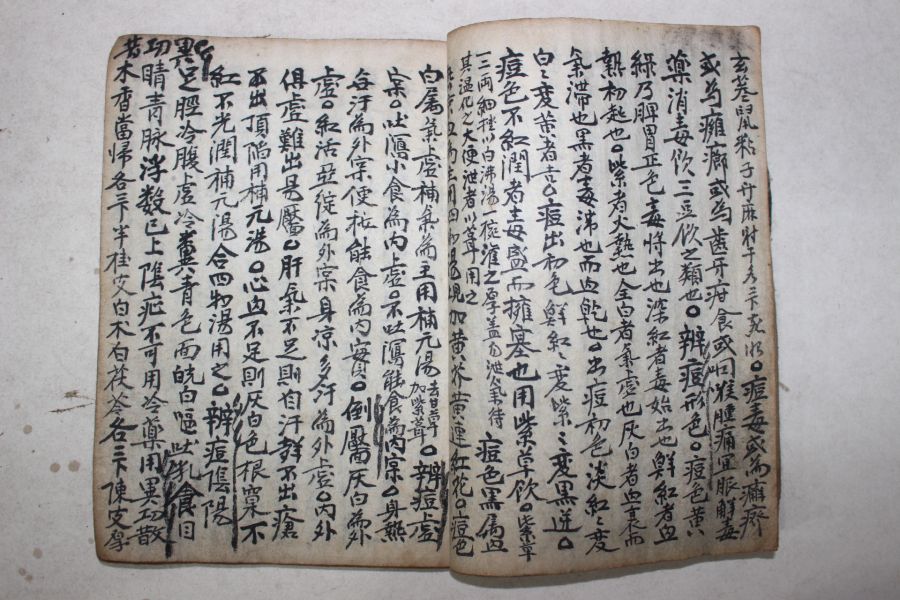 玄蔘鼠粘子升麻射干各一戔煎水○痘毒或為癰瘠
或為癱癤或為齒牙疳食或咽喉腫痛宜服解毒
藥消毒飮三豆飮之類也○辨痘形色○痘色黃
綠乃脾胃正色毒將出也深紅者毒始出也鮮紅者血
熱初起也○紫者大熱也全白者氣虛也灰白者血衰而
氣滯也黑者毒沸也而血乾也○出痘初色淡紅紅變
白白變黃者吉○痘出初色鮮紅紅變紫紫變黑逆○
痘色不紅潤者毒盛而擁塞也用紫草飮○紫草
一二兩細挫以白沸湯一椀淮之厚盖勿泄氣待
其溫化之大便泄者以茸用之 痘色黑属血
加黃芩黃連紅花○痘色
白属氣虛補氣為主用補元湯去甘草加紫草○辨痘虛
宲○吐瀉小食為內虛○不吐瀉能食為內宲○身熱
無汗為外宲便秘能食為內實○倒靨灰白為外
虛○紅活綻為外宲身凉多汗為外虛○內外
俱虛難出易靨○肝氣不足則自汗群不出瘡
不出頂陷用補元湯○心血不足則灰白色根窠不
紅不光潤補元湯合四物湯用之○辨痘陰陽
異足脛冷腹虛冷糞青色面皖白嘔吐乳食目
睛青脉浮数已上陰症不可用冷藥用異功散
木香當帰各三卞半桂支白朮白茯苓各二卞陳支厚